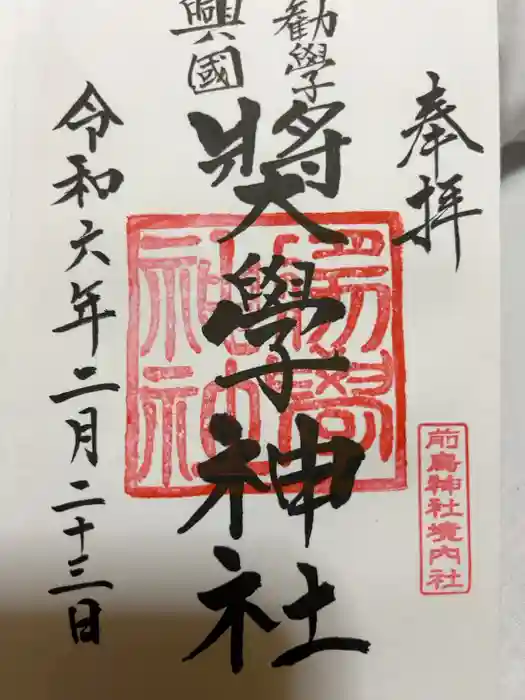 奉拝
勸學
興國
奬學神社
令和六年二月二十三日
前鳥神社境内社